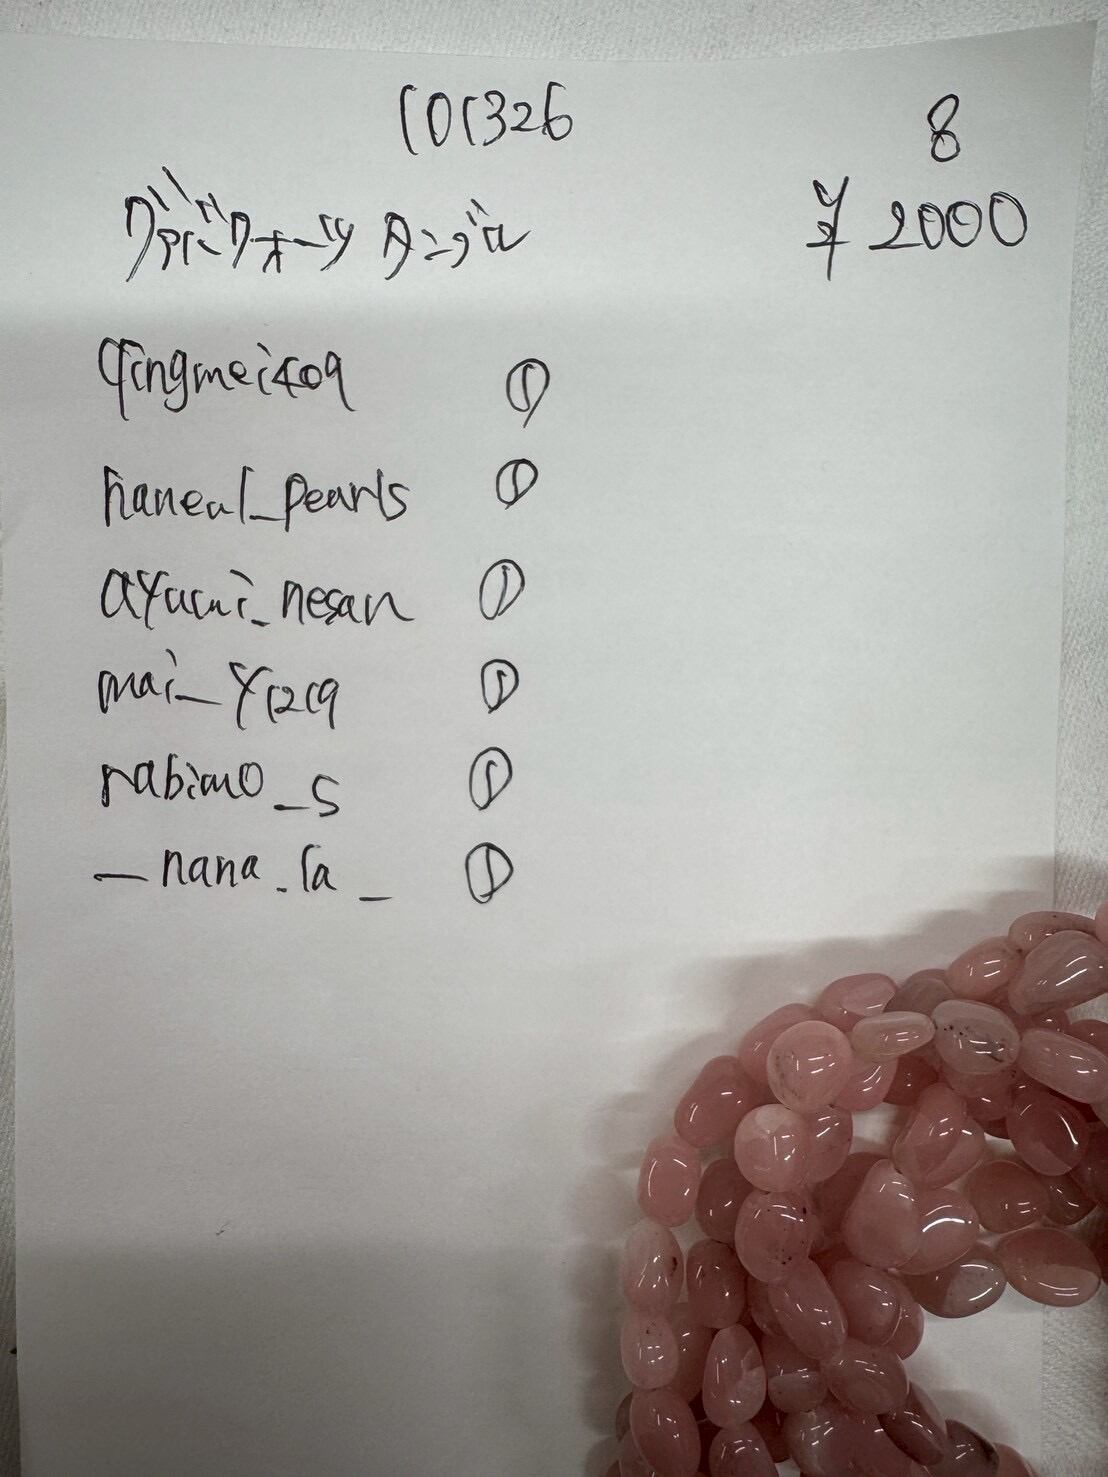 101326
8
グァバクォーツ タンブル
¥2000
qingmei409 ①
haneul_pearls ①
ayumi_nesan ①
mai_y1219 ①
rabimo_s ①
_nana.la_ ①